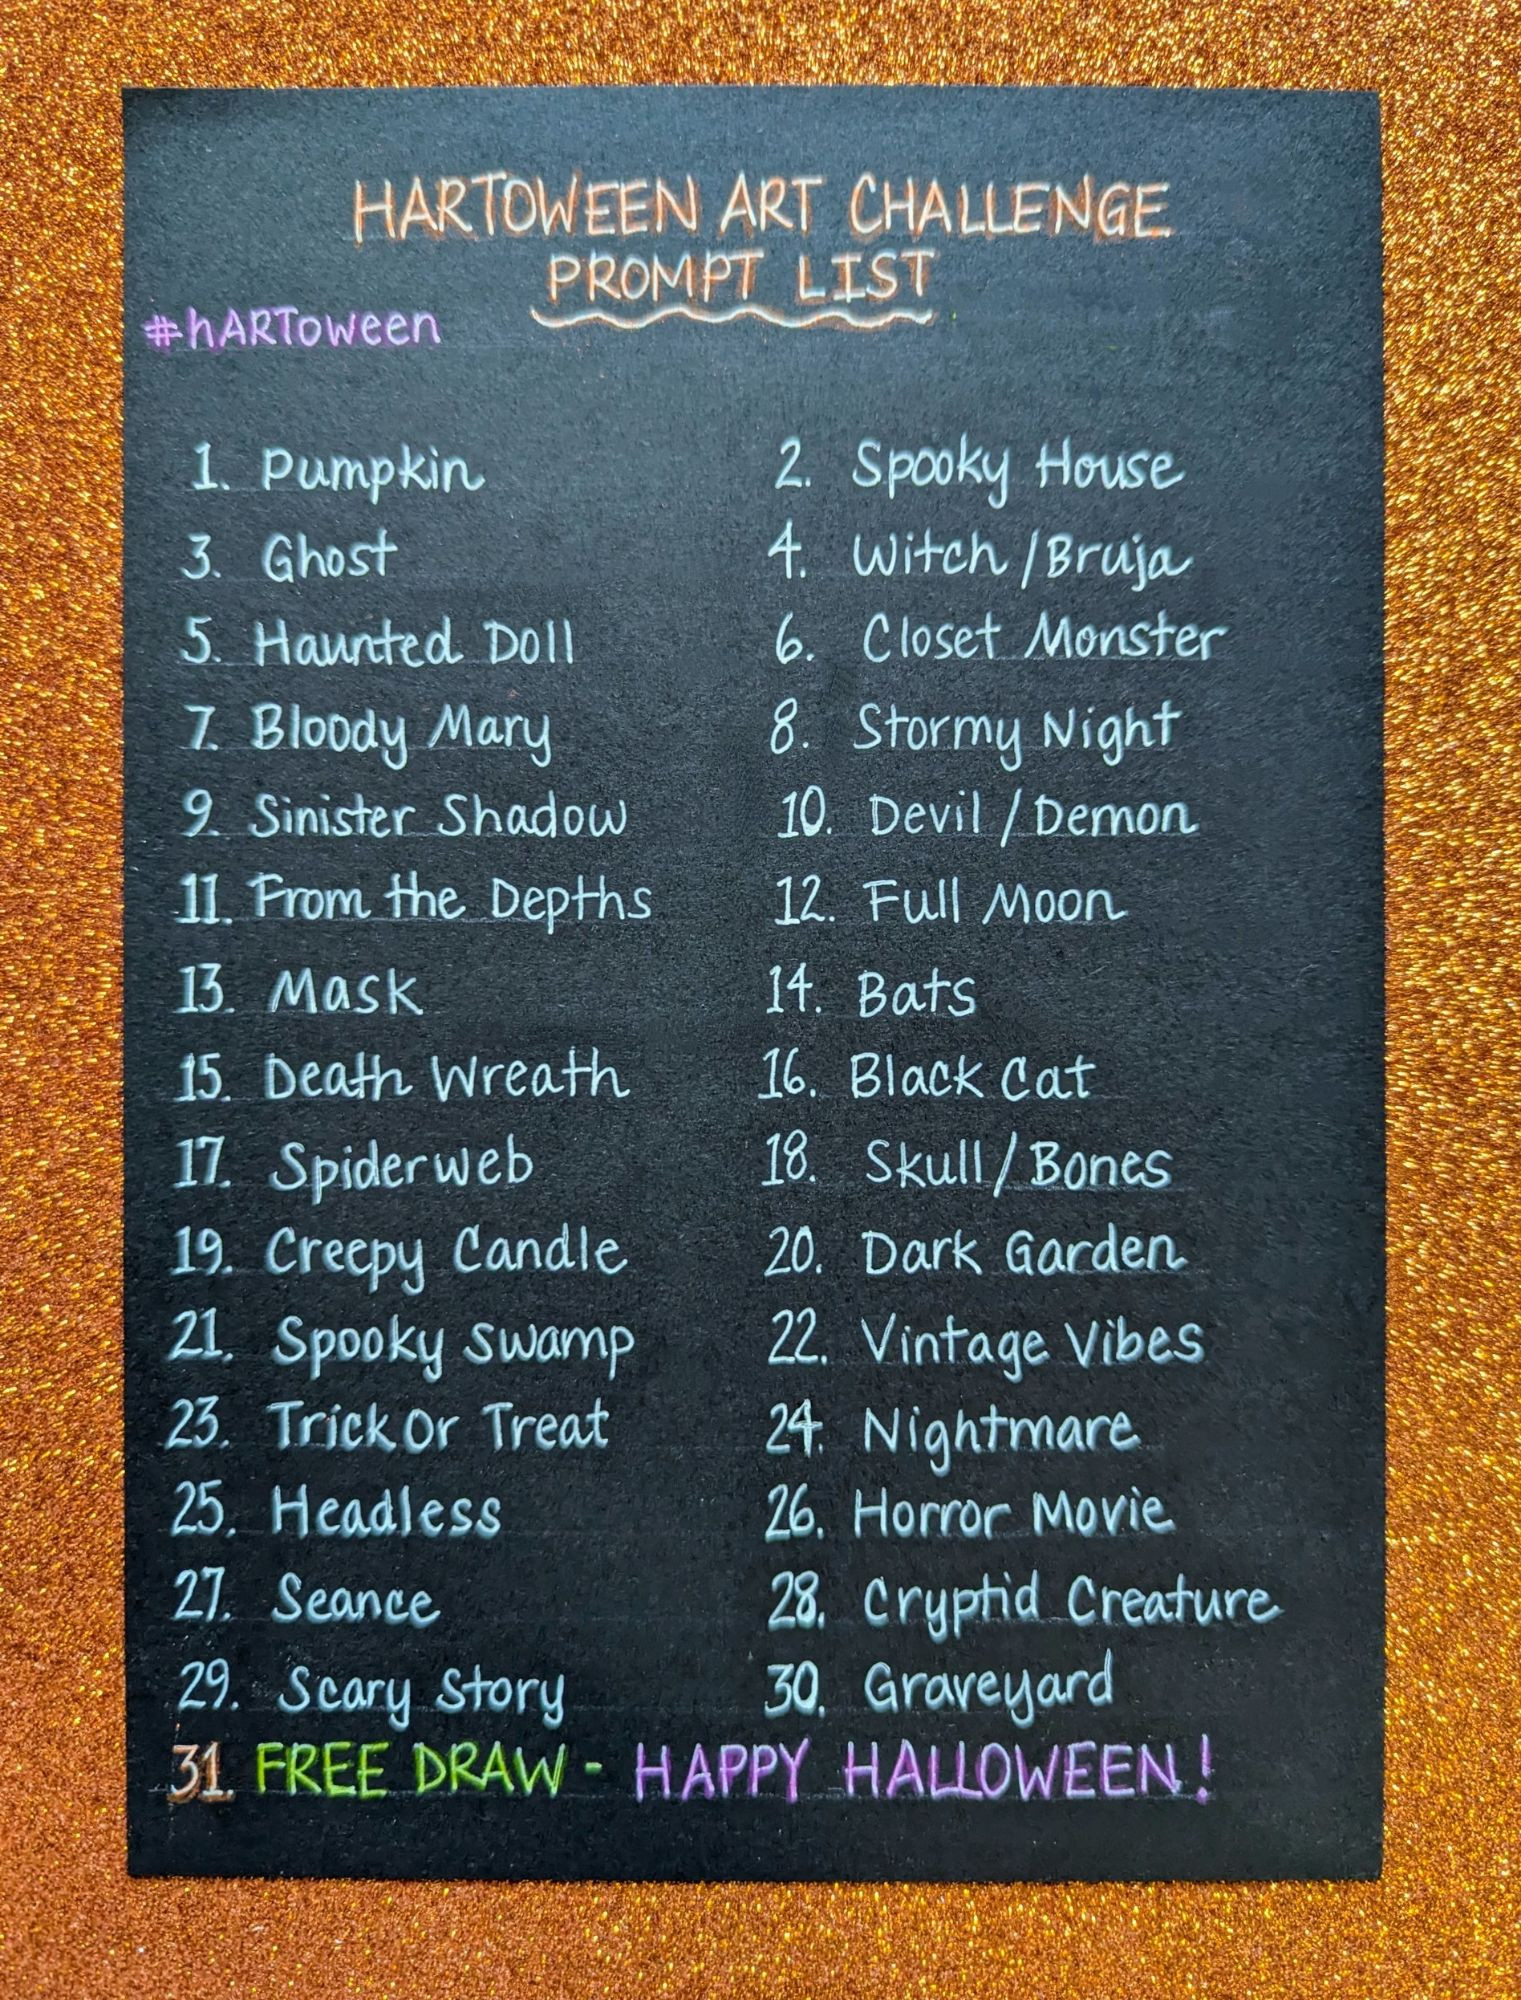 HARTOWEEN ART CHALLENGE
PROMPT LIST
#hARToween
1. Pumpkin 2. Spooky House
3. Ghost 4. Witch/Bruja
5. Haunted Doll 6. Closet Monster
7. Bloody Mary 8. Stormy Night
9. Sinister Shadow 10. Devil/Demon
11. From the Depths 12. Full Moon
13. Mask 14. Bats
15. Death Wreath 16. Black Cat
17. Spiderweb 18. Skull/Bones
19. Creepy Candle 20. Dark Garden
21. Spooky Swamp 22. Vintage Vibes
23. Trick Or Treat 24. Nightmare
25. Headless 26. Horror Movie
27. Seance 28. Cryptid Creature
29. Scary Story 30. Graveyard
31. FREE DRAW - HAPPY HALLOWEEN!